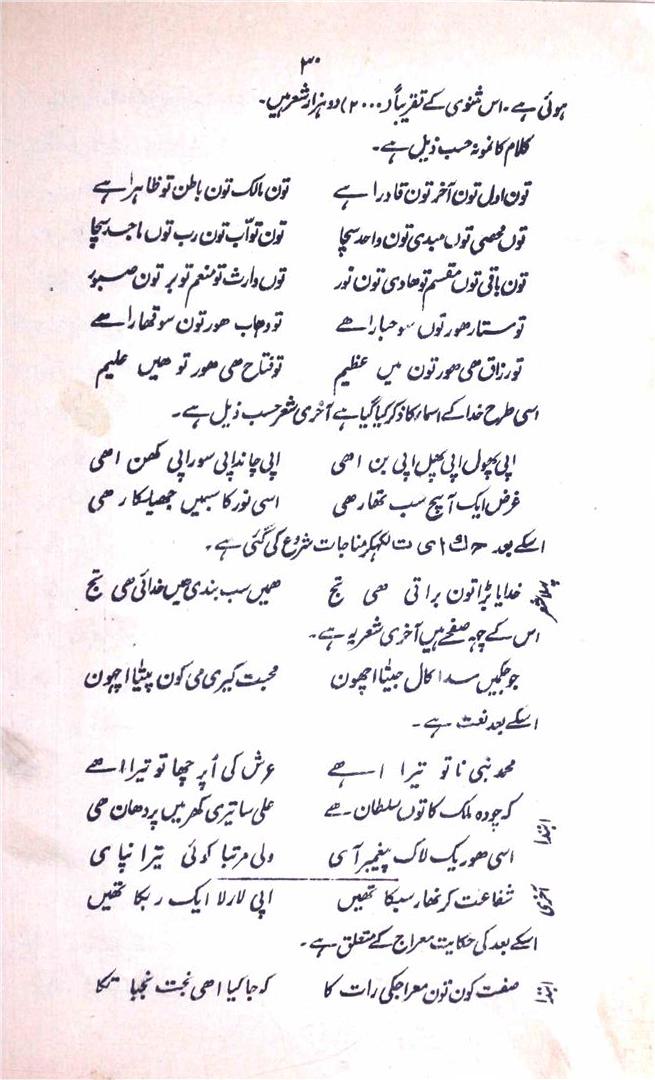 ۳۰
ہوئی ہے۔ اس مثنوی کے تقریباً (۲۰۰۰) دو ہزار شعر ہیں۔
کلام کا نمونہ حسب ذیل ہے۔
تون اول تون آخر تون قادر اہے تون مالک تون باطن تو ظاہر اہے
توں محصی توں مبدی تون واحد سچا تون تواب تون رب توں ماجد سچا
تون باقی توں مقسم تو ھادی تون نور توں وارث تو منعم تو بر تون صبور
تو ستار ھور توں سو جبار اھے تو وھاب ھور تون سو قھار اھے
تو رزاق ھی ھور تون میں عظیم تو فتاح ھی ھور تو ھیں علیم
اسی طرح خدا کے اسماء کا ذکر کیا گیا ہے آخری شعر حسب ذیل ہے۔
اپی پھول اپی پھل اپی بن اھی اپی چاند اپی سور اپی کھن اھی
غرض ایک آپیچ سب تھار ھی اسی نور کا سبمیں جھلکار ھی
اسکے بعد ح ک ا ی ت لکھکر مناجات شروع کی گئی ہے۔
پہلا شعر خدایا بڑا تون براتی ھی تج ھمیں سب بندی ھیں خدائی ھی تج
اس کے چھہ صفحے ہیں آخری شعر یہ ہے۔
جو جگمیں سدا کال جیتا اچھون محبت کیری می کون پیتا اچھون
اسکے بعد نعت ہے۔
محمد نبی نا تو تیرا اھے عرش کی اُپر چھا تو تیرا اھے
ابتدا کہ چودہ ملک کا توں سلطان ھے علی سا تیری کھر میں پردھان ھی
اسی ھور یک لاک پیغمبر آی ولی مرتبا کوئی تیرا نپای
آخری شفاعت کرنھار سبکا تھیں اپی لارلا ایک ربکا تھیں
اسکے بعد کی حکایت معراج کے متعلق ہے۔
ابتدا صفت کون تون معراجکی رات کا کہ جا کیا اھی نجت